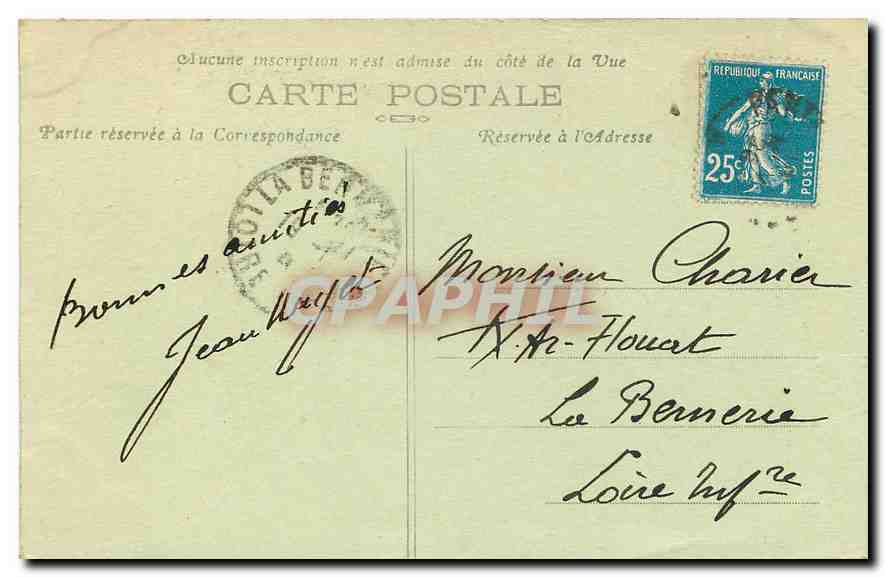 Aucune inscription n'est admise du côté de la Vue
CARTE POSTALE
Partie réservée à la Correspondance
Réservée à l'Adresse
REPUBLIQUE FRANÇAISE
25c
POSTES
LA BERN
Bonnes amitiés
Jean
Monsieur Charier
La Bernerie
Loire Infre
CPAPHIL